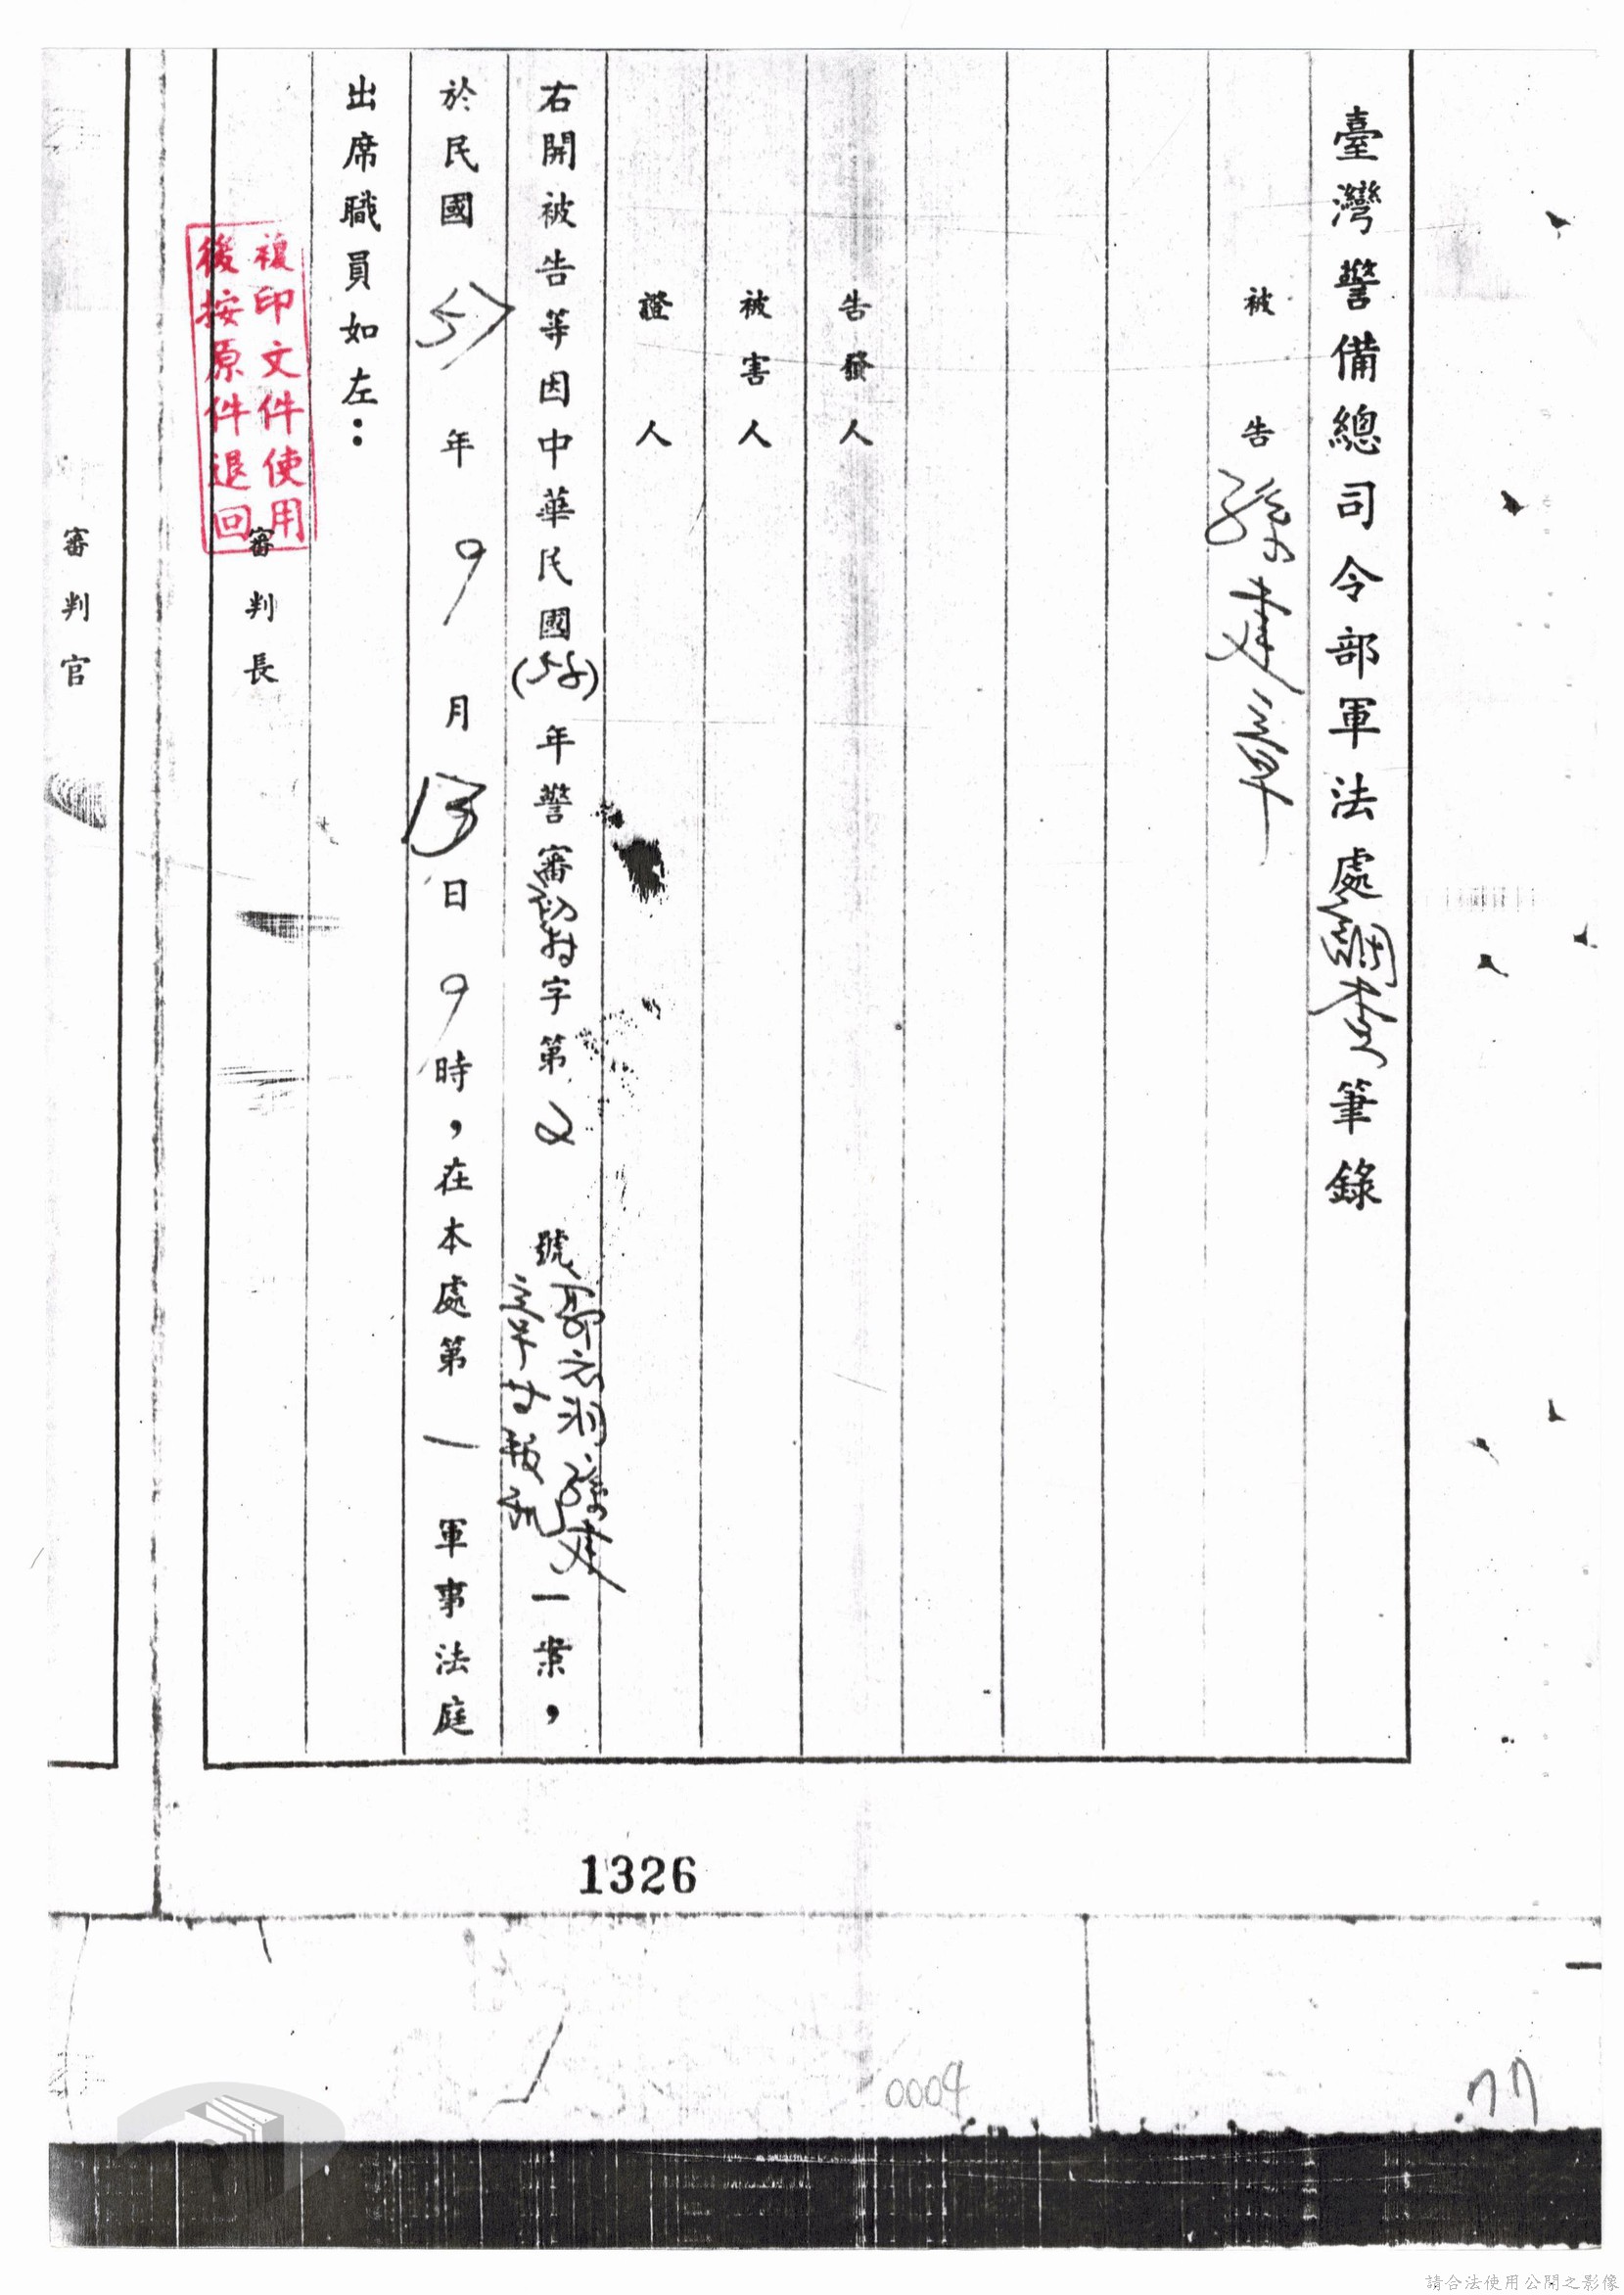 臺灣警備總司令部軍法處調查筆錄
被告 孫建章
告發人
被害人
證人
右開被告等因中華民國(55)年警審初特字第2號 孫建
章等叛亂一案，
於民國 年9月13日9時，在本處第一軍事法庭
出席職員如左：
審判長
審判官
複印文件使用
後按原件退回
1326
0004
77
請合法使用公開之影像